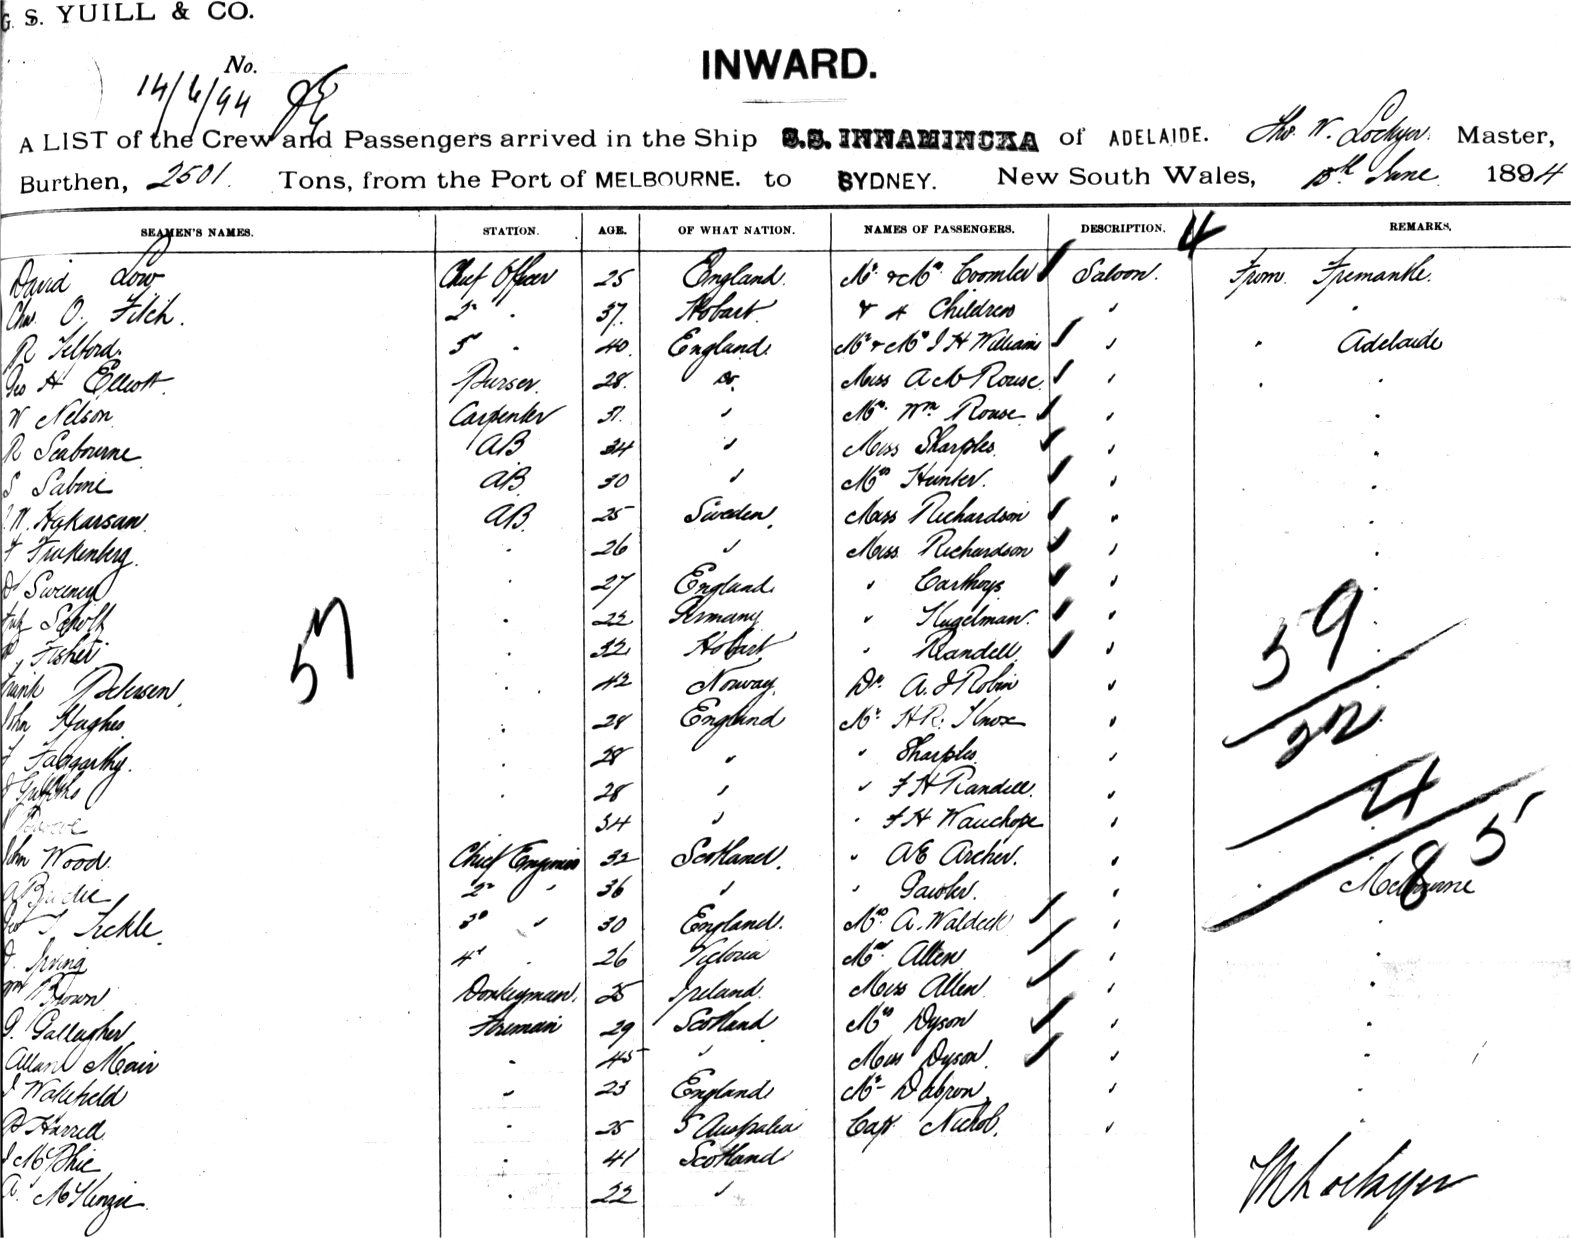 G. S. YUILL & CO.
No.
INWARD.
14/6/94
A LIST of the Crew and Passengers arrived in the Ship S.S. INNAMINCKA of ADELAIDE. Tho. W. Lockyer. Master,
Burthen, 2501. Tons, from the Port of MELBOURNE. to SYDNEY. New South Wales, June 1894
SEAMEN'S NAMES. STATION. AGE. OF WHAT NATION. NAMES OF PASSENGERS. DESCRIPTION. 4 REMARKS.
David Low Chief Officer 25 England. Mr & Mrs Coombes Saloon. From Fremantle.
Chas. O. Fitch. 2nd " 37. Hobart & 4 Children " "
R Telford. 3 " 40. England. Mr & Mrs J H Williams " " Adelaide
Geo H Elliott. Purser. 28. Do. Miss A M Rouse. " " "
W Nelson Carpenter 31 " Mr. Wm Rouse " "
R Seabourne AB 34 " Miss Sharples " "
S Sabine AB 30 " Mrs Hunter. " "
W. Hakarsan. AB. 25 Sweden. Miss Richardson " "
Frukenberg. " 26 " Miss Richardson " "
D Sweeney " 27 England " Carthays " "
Fritz Scholtz " 22 Germany " Kugelman. " "
57
Fisher 32 Hobart " Randell " 59
Frank Petersen. " 42 Norway. Dr. A. J Robin "
John Hughes. " 28 England Mr. H R. Knox " 22
T Faggarthy. " 28 " " Sharples "
Griffiths " 28 " " F H Randell. " 4
34 " " F H Wauchope "
John Wood. Chief Engineer 32 Scotland. " A E Archer. " 85
2nd " 36 " " Gawler. " " Melbourne
T. Tickle. 3rd " 30 England. Mrs A. Waldeck " "
J. Irving 4th " 26 Victoria Mrs Allen " "
Wm Brown Donkeyman. 25 Ireland. Miss Allen " "
G. Gallagher Fireman 29 Scotland Mrs Dyson " "
Allan Mair " 45 " Miss Dyson. " "
J Wakefield " 23 England Mr. Dabron. " "
Harrell " 25 S Australia Capt Nichol. " "
J McPhie " 41 Scotland
A. McKenzie. " 22 "
T W Lockyer